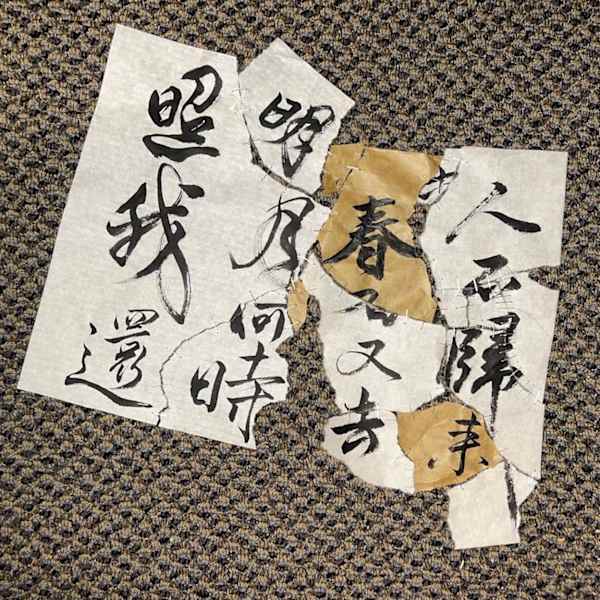 人歸
春又去
明月何時
照我還